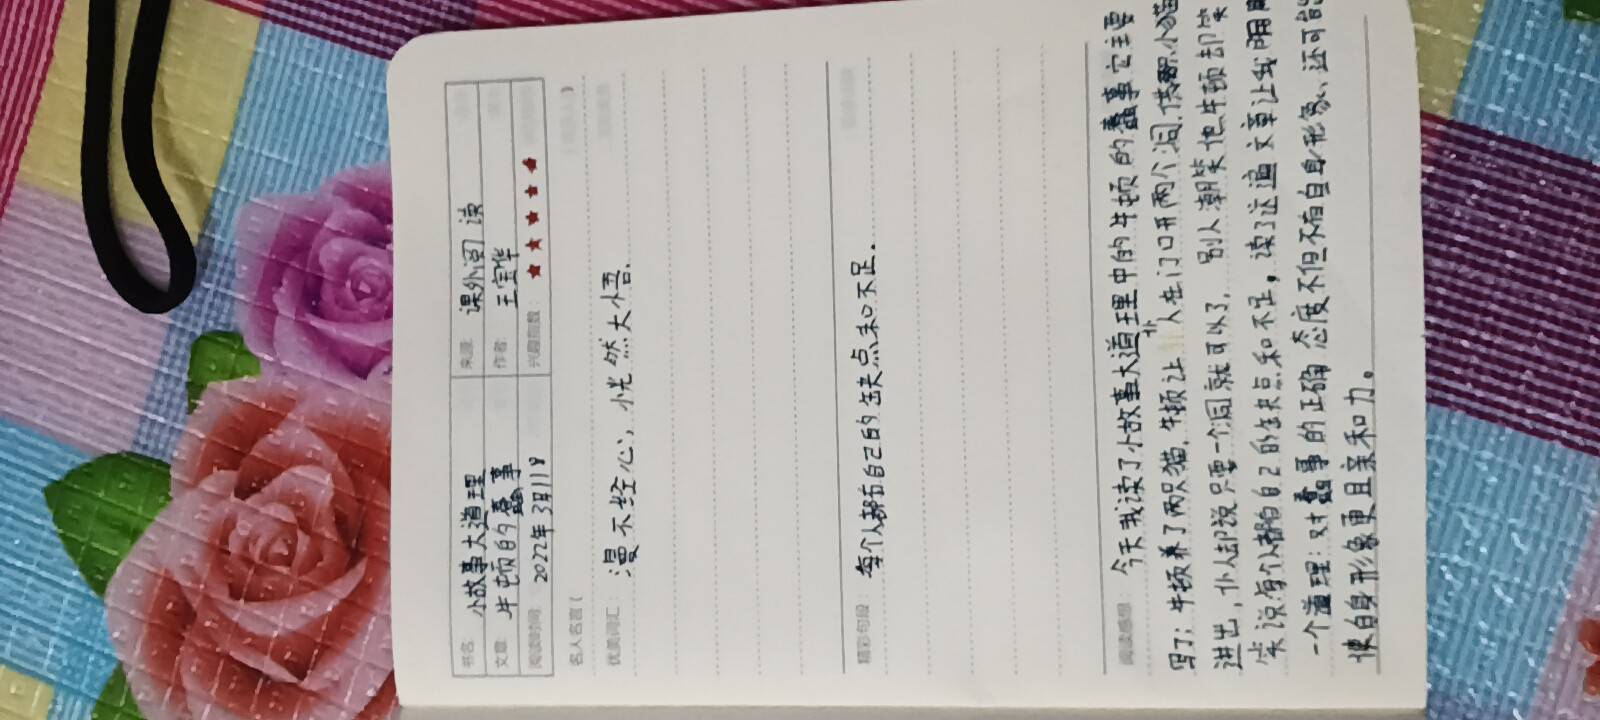 书名: 小故事大道理 来源: 课外阅读
文章: 牛顿的蠢事 作者: 王宝华
阅读时间: 2022年3月11日 兴趣指数: ★★★★★
名人名言( )
优美词汇: 漫不经心, 恍然大悟.
精彩句段: 每个人都有自己的缺点和不足.
阅读感想: 今天我读了小故事大道理中的牛顿的蠢事它主要
写了: 牛顿养了两只猫. 牛顿让仆人在门口开两个洞.供 小猫
进出, 仆人却说只要一个洞就可以了. 别人潮笑他牛顿却笑
笑说每个人都自己的缺点和不足, 读了这遍文章让我明
一个道理: 对蠢事的正确态度不但不有自身形象、还可能
使自身形象更且亲和力。